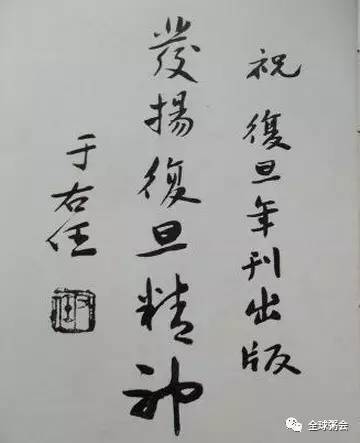 祝復旦年刊出版
發揚復旦精神
于右任
全球粥会